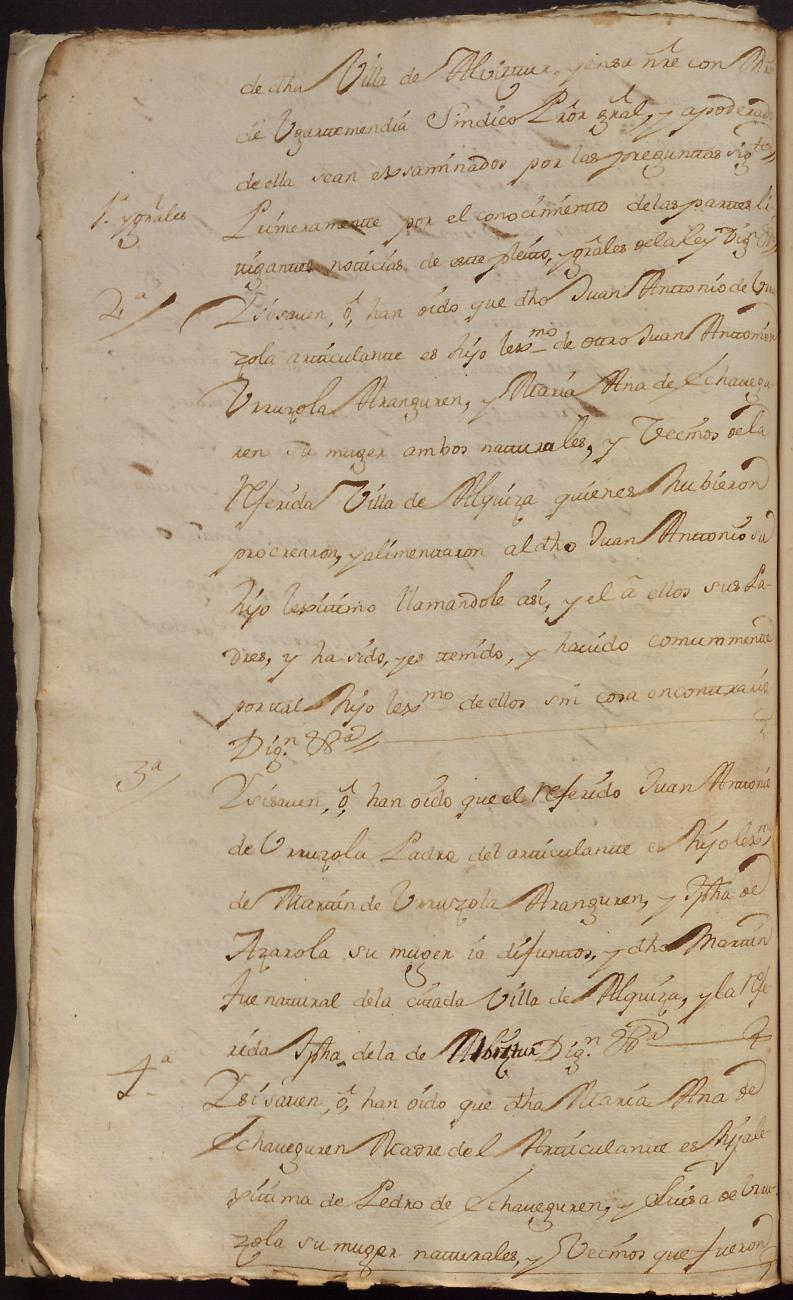 de dha Villa de Albiztur, y en su nre con Mrn
de Ugartemendia Sindico Pror gral, y apoderado
de ella sean exsaminados por las preguntas sigtes
1ª y grales
Primeramente por el conocimiento de las partes li
tigantes noticias de este pleito, y grales de la Ley Dign
2ª
Y si saven, ô, han oido que dho Juan Anttonio de Urru
zola articulante es hijo lexmo de ottro Juan Anttonio
Urruzola Aranguren, y Maria Ana de Echavegu
ren su muger ambos naturales, y Vecinos de la
referida Villa de Alquiza quienes hubieron
procrearon, y alimentaron al dho Juan Anttonio su
hijo lexitimo llamandole asi, y el â ellos sus Pa-
dres, y ha sido, y es ttenido, y havido comummente
por tal hijo lexmo de ellos sin cosa en contrario
Dign
3ª
Y si saven, ô, han oido que el referido Juan Antonio
de Urruzola Padre del articulante es hijo lexmo
de Martin de Urruzola Aranguren, y Jpha de
Azarola su muger ia difunttos, y dho Martin
fue natural de la citada Villa de Alquiza, y la refe
rida Jpha de la de Albiztur Dign
4ª
Y si saven, ô, han oido que dha Maria Ana de
Echaveguren Madre del Articulante es hija le
xitima de Pedro de Echaveguren, y Luisa de Urru-
zola su muger naturales, y Vecinos que fueron